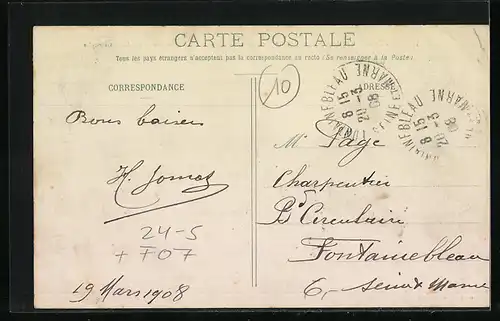 CARTE POSTALE
Tous les pays étrangers n'acceptent pas la correspondance au recto (Se renseigner à la Poste)
CORRESPONDANCE
ADRESSE
10
FONTAINEBLEAU SEINE ET MARNE
8 15
20 - 3
08
FONTAINEBLEAU SEINE ET MARNE
8 15
20 - 3
08
Bons baisers
Mr Page
Charpentier
Bd Circulaire
Fontainebleau
Seine et Marne
H.
24-5
+ F07
19 Mars 1908